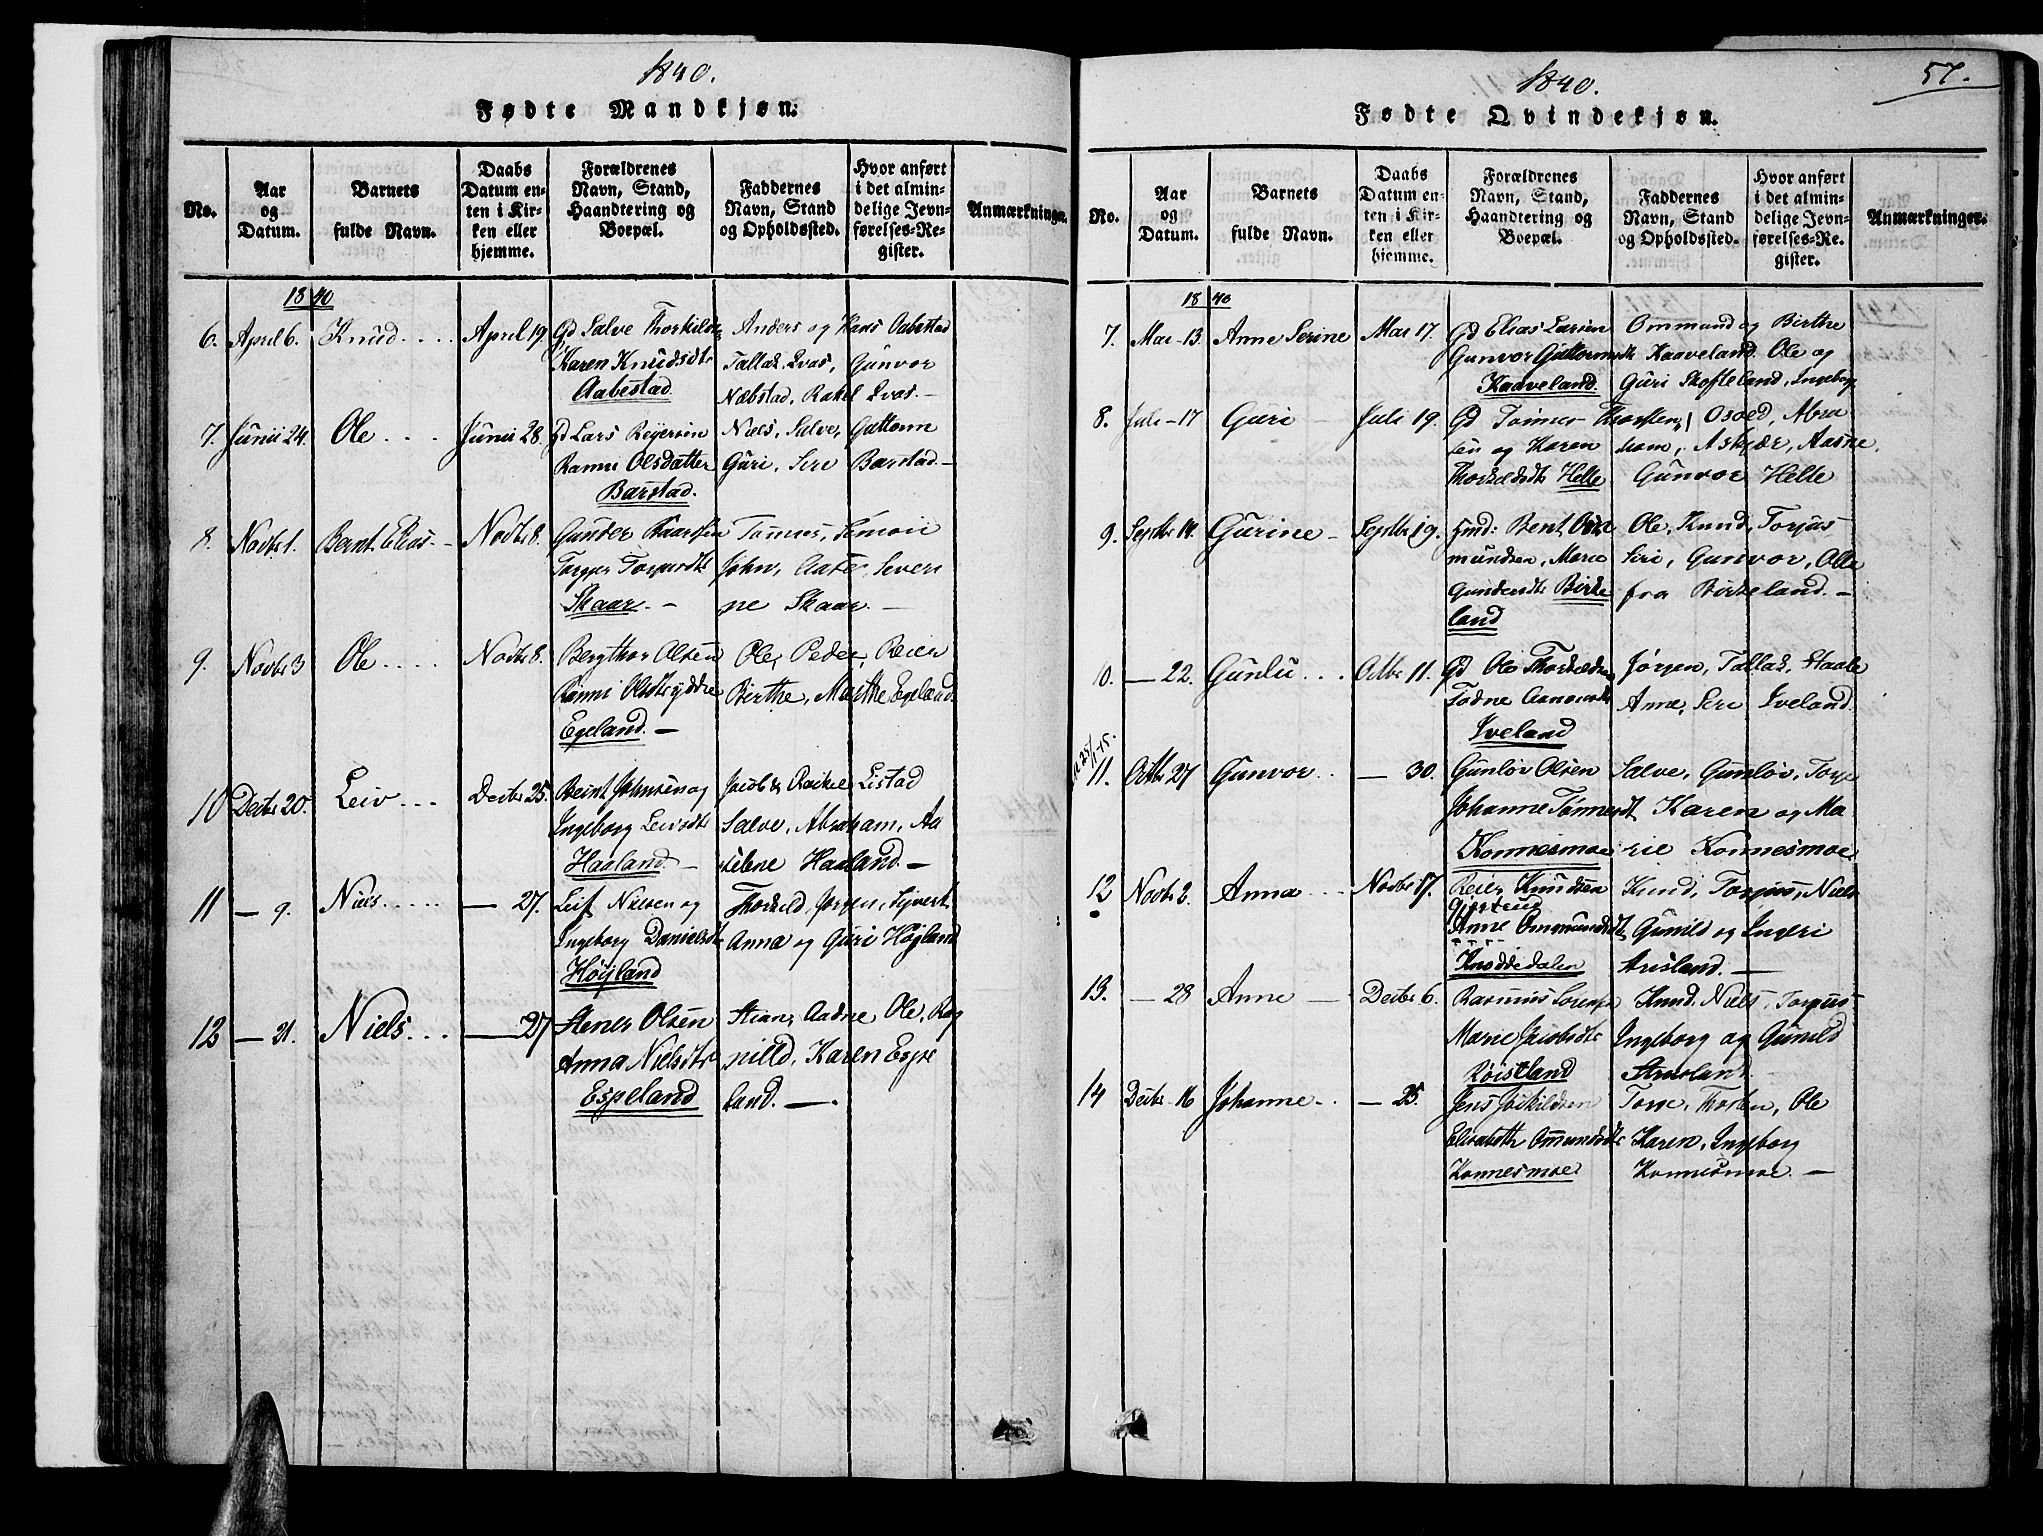 1840.
Fødte Mandkjøn.
No.
Aar og Datum.
Barnets fulde Navn.
Daabs Datum enten i Kirken eller hjemme.
Forældrenes Navn, Stand, Haandtering og Boepæl.
Faddernes Navn, Stand og Opholdssted.
Hvor anført i det almindelige Jevnførelses-Register.
Anmærkninger.
1840
6. April 6. Knud.... April 19. Gd Salve Thorkilds Anders og Hans Aabestad
Karen Knudsdtr Tallak Ivas, Gunvor
Aabestad Næbstad, Rakel Ivas.-
7. Junii 24. Ole.... Junii 28. Gd Lars Reyersen Niels, Salve, Guttorm
Ranni Olsdatter Guri, Seri Barstad-
Barstad.
8. Novbr 1. Bernt Elias.- Novbr 8. Gunder Tønnes, Simon
John, Aase, Severi
Skaar.- ne Skaar.-
9. Novbr 3 Ole.... Novbr 8. Bergthor Olsen Ole, Peder, Reier
Ranni Birthe, Marthe Egeland.
Egeland.-
10 Decbr 20. Leiv... Decbr 25. Beint Johnsen og Jacob & Rakel Listad
Ingeborg Leivsdtr Salve, Abraham, Aa
Haaland.- selene Haaland.-
11 - 9. Niels..... - 27. Leif Nielsen og Thorkild, Jørgen, Syvert
Ingeborg Danielsdtr Anna og Guri Högland
Höyland
12 - 21. Niels... - 27 Stener Olsen Stian, Aadne, Ole, Rag
Anna Nielsdtr nilld, Karen Espe
Espeland land.-.
1840.
57.
Fødte Qvindekjøn.
No.
Aar og Datum.
Barnets fulde Navn.
Daabs Datum enten i Kirken eller hjemme.
Forældrenes Navn, Stand, Haandtering og Boepæl.
Faddernes Navn, Stand og Opholdssted.
Hvor anført i det almindelige Jevnførelses-Re. gister.
Anmærkninger.
1840
7. Mai-13. Anne Serine Mai 17. Gd Elias Larsen Ommund og Birthe
Gunvor Guttormsdtr Kaaveland. Ole og
Kaaveland. Guri Skofteland, Ingeborg
8. Juli-17 Guri - Juli 19. Gd Tønnes Thorsten, Osold, Abra
sen og Karen ham, Askjær, Aasne.
Thorkeldsdtr Helle Gunvor Helle
9. Septbr 14. Gurine- Septbr 19. Bent Os Ole, Knud, Torjus
mundsen, Marie Seri, Gunvor, Olle
Gundersdtr Birke fra Birkeland.-
land
10. - 22. Gunlu... Octbr 11. Gd Ole Jørgen, Tallak, Staale
Todne Anne, Seri Iveland.
Iveland
11. Octbr 27 Gunvor.. - 30. Gunlöv Olsen Salve, Gunlöv, Torje
Johanne Tønnesdt Karen og Ma
Konnesmoe rie Konnesmoe.
12 Novbr 2. Anna... Novbr 17. Reier Knudsen Knud, Torjus, Niels
Gjertrud
Anne Ommundsdtr Gunild og Ingeri
Knoddedalen Arisland.-
13. - 28 Anne - Decbr 6. Rasmus Knud, Niels, Torjus
Marie Jacobsdtr Ingeborg og Gunild
Röistland
14 Decbr 16 Johanne.. - 25. Jens Torje, Thosten, Ole
Elisabeth Omundsdtr Karen, Ingeborg
Konnesmoe Konnesmoe.-